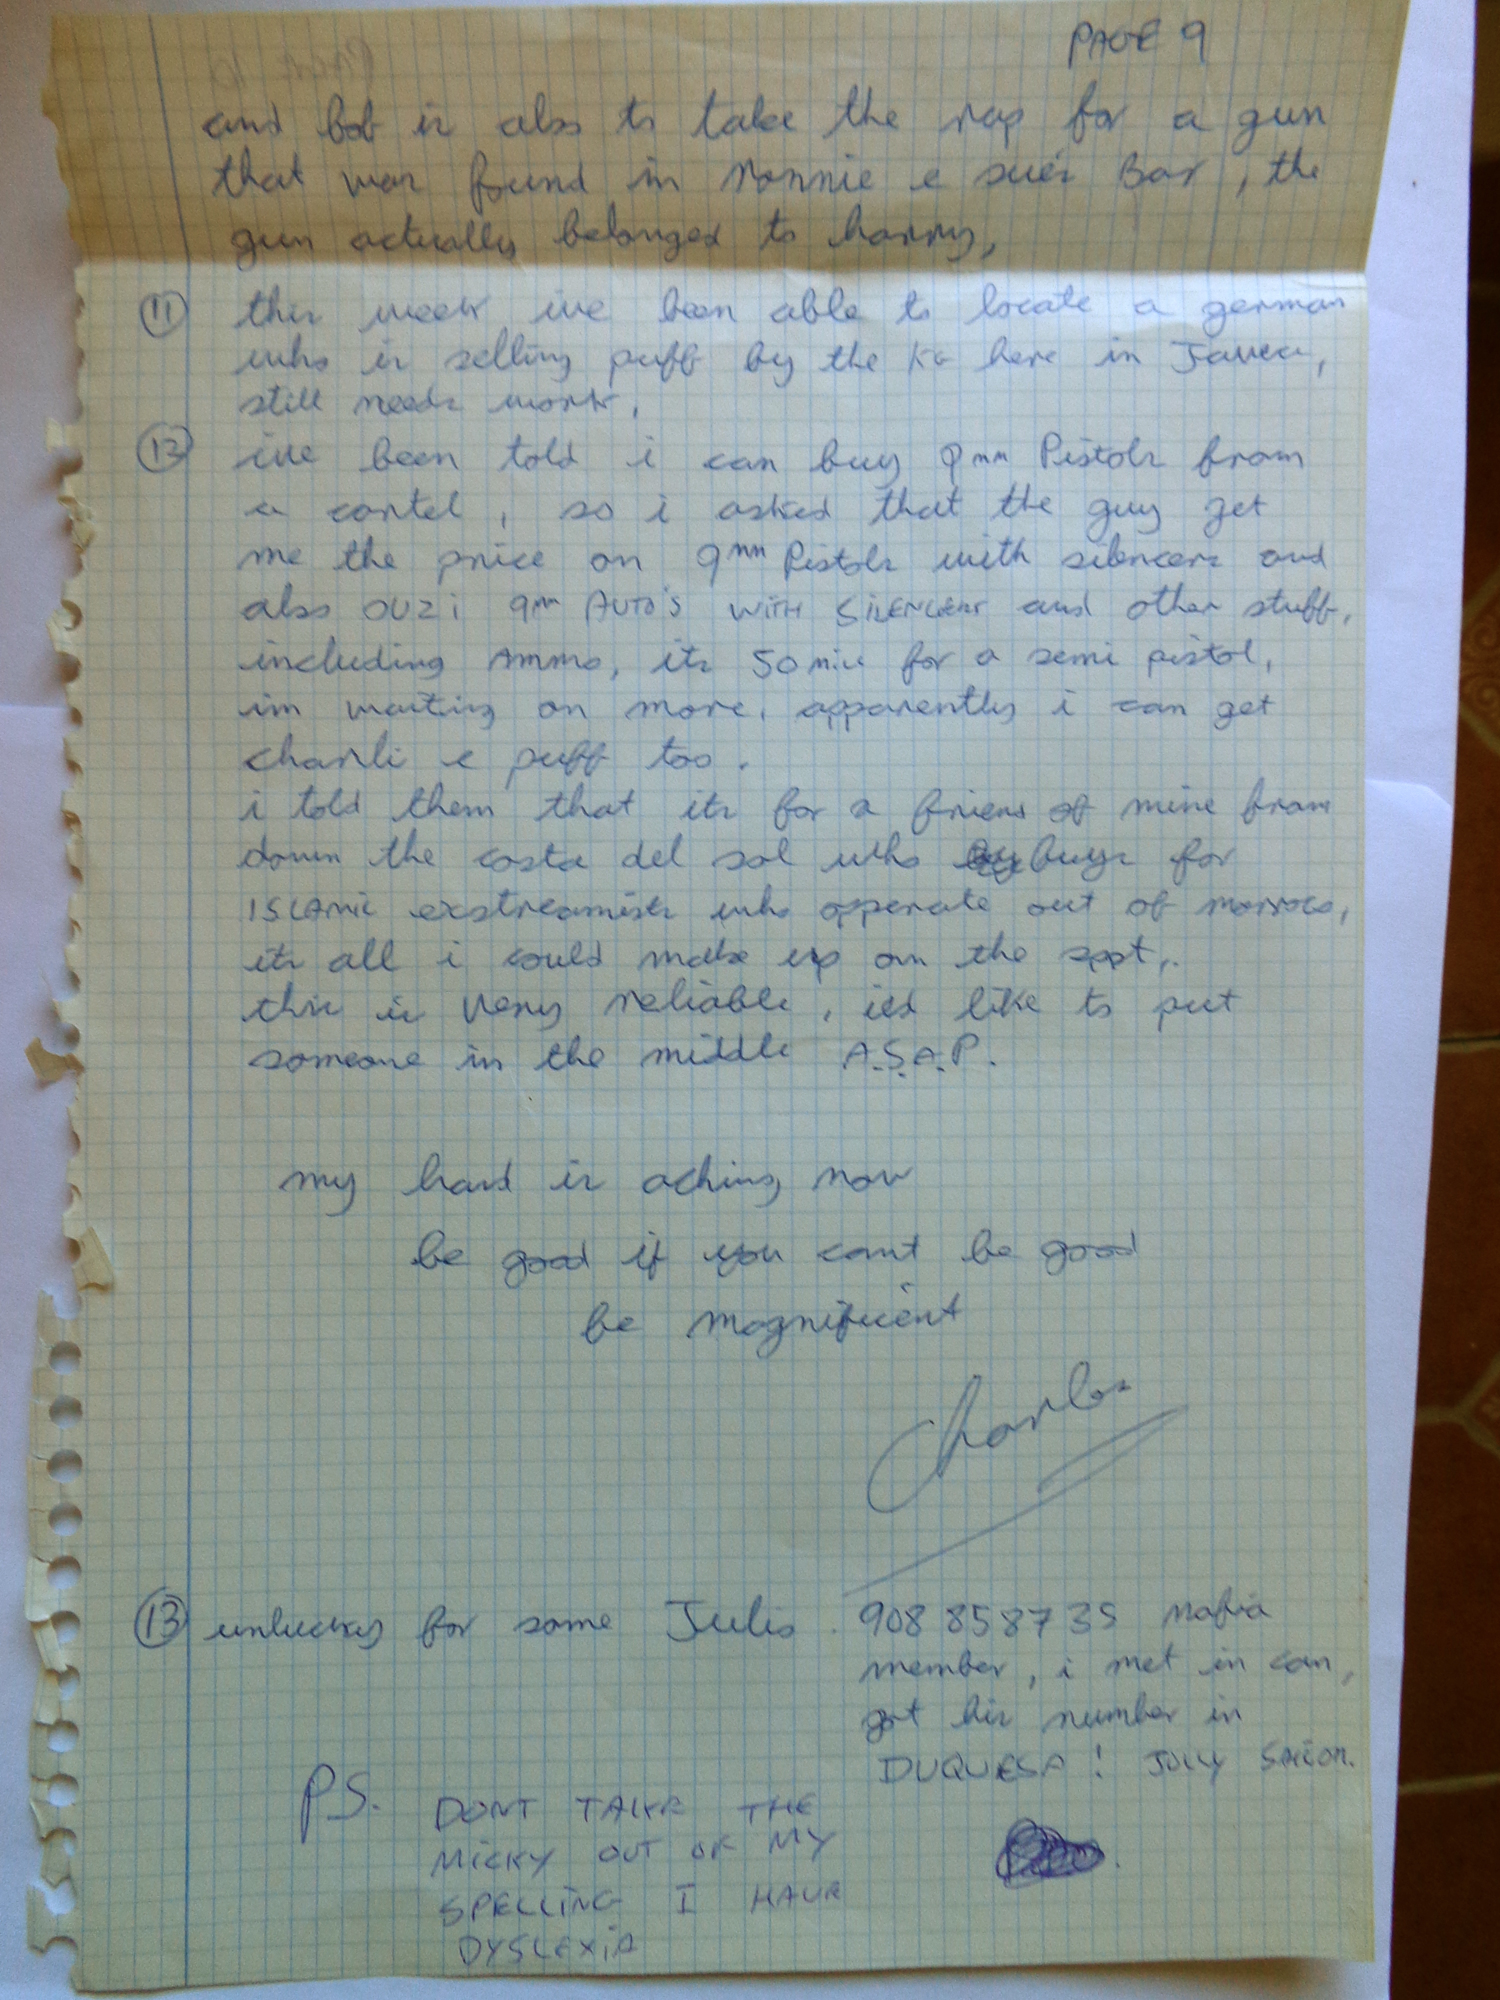 PAGE 9
and bob is also to take the rap for a gun
that was found in Ronnie e sue's Bar, the
gun actually belonged to harry,
11 this week ive been able to locate a german
who is selling puff by the KG here in Javea,
still needs work.
12 ive been told i can buy 9mm Pistols from
a cartel, so i asked that the guy get
me the price on 9mm Pistols with silencers and
also OUZi 9mm AUTO'S WITH SILENCERS and other stuff,
including Ammo, its 50 mil for a semi pistol,
im waiting on more, apparently i can get
charli e puff too.
i told them that its for a friend of mine from
down the costa del sol who buys for
ISLAMIC exstreamists who opperate out of morroco,
its all i could make up on the spot,.
this is very reliable, ied like to put
someone in the middle A.S.A.P.
my hand is aching now
be good if you cant be good
be magnificent
Charles
13 unlucky for some Julio. 908 858735 Mafia
member, i met in can,
got his number in
DUQUESA! JOLLY
PS. DONT TAKE THE
MICKY OUT OF MY
SPELLING I HAVE
DYSLEXIA